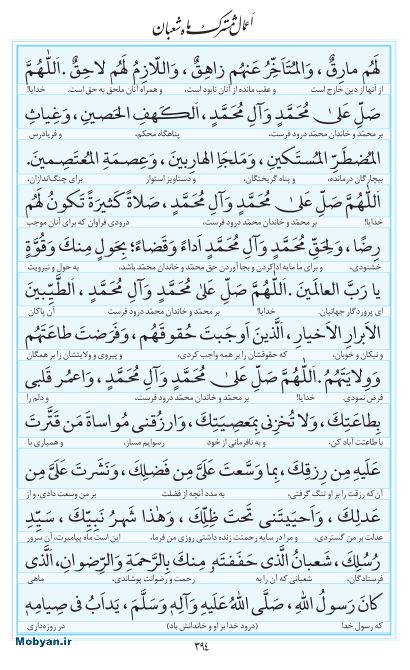 اعمال مشترک ماه شعبان
لَهُم مارِقٌ ، وَالمُتَأَخِّرُ عَنهُم زاهِقٌ ، وَاللّازِمُ لَهُم لاحِقٌ . اَللّٰهُمَّ
از آنها از دین خارج است و عقب مانده از آنان نابود است، و همراه آنان ملحق به حق است. خدایا!
صَلِّ عَلىٰ مُحَمَّدٍ وَآلِ مُحَمَّدٍ ، اَلكَهفِ الحَصينِ ، وَغِياثِ
بر محمّد و خاندان محمّد درود فرست، پناهگاه محکم، و فریادرس
المُضطَرِّ المُستَكينِ ، وَمَلجَإِ الهارِبينَ ، وَعِصمَةِ المُعتَصِمينَ.
بیچارگان درمانده، و پناه گریختگان، و دستاویز استوار برای چنگ‌اندازان.
اَللّٰهُمَّ صَلِّ عَلىٰ مُحَمَّدٍ وَآلِ مُحَمَّدٍ ، صَلاةً كَثيرَةً تَكونُ لَهُم
خدایا! بر محمّد و خاندان محمّد درود فرست، درودی فراوان که برای آنان موجب
رِضًا ، وَلِحَقِّ مُحَمَّدٍ وَآلِ مُحَمَّدٍ اَداءً وَقَضاءً؛ بِحَولٍ مِنكَ وَقُوَّةٍ
خشنودی، و برای ما مایه اداکردن و بجا آوردن حق محمّد و خاندان محمّد باشد، به حول و نیرویت
يا رَبَّ العالَمينَ . اَللّٰهُمَّ صَلِّ عَلىٰ مُحَمَّدٍ وَآلِ مُحَمَّدٍ ، اَلطَّيِّبينَ
ای پروردگار جهانیان. خدایا! بر محمّد و خاندان محمّد درود فرست، آن پاکان
الاَبرارِ الاَخيارِ ، اَلَّذينَ اَوجَبتَ حُقوقَهُم ، وَفَرَضتَ طاعَتَهُم
و نیکان و خوبان، که حقوقشان را بر همه واجب کردی، و پیروی و ولایتشان را بر همگان
وَوِلايَتَهُم . اَللّٰهُمَّ صَلِّ عَلىٰ مُحَمَّدٍ وَآلِ مُحَمَّدٍ ، وَاعمُر قَلبى
فرض نمودی. خدایا! بر محمّد و خاندان محمّد درود فرست، و دلم را
بِطاعَتِكَ ، وَلا تُخزِنى بِمَعصِيَتِكَ ، وَارزُقنى مُواساةَ مَن قَتَّرتَ
با طاعتت آباد کن، و به نافرمانی از خود رسوایم مساز، و همیاری با
عَلَيهِ مِن رِزقِكَ ، بِما وَسَّعتَ عَلَىَّ مِن فَضلِكَ ، وَنَشَرتَ عَلَىَّ مِن
آن که رزقت را بر او تنگ گرفتی، به مدد آنچه از فضلت بر من وسعت دادی، و از
عَدلِكَ ، وَاَحيَيتَنى تَحتَ ظِلِّكَ ، وَهٰذا شَهرُ نَبِيِّكَ ، سَيِّدِ
عدلت بر من گستردی، و مرا در سایه رحمتت زنده داشتی روزی من فرما، این است ماه پیامبرت، آن سرور
رُسُلِكَ ، شَعبانُ الَّذى حَفَفتَهُ مِنكَ بِالرَّحمَةِ وَالرِّضوانِ، اَلَّذى
فرستادگان، شعبانی که آن را به رحمت و رضوانت پوشاندی، ماهی
كانَ رَسولُ اللهِ ، صَلَّى اللهُ عَلَيهِ وَآلِهِ وَسَلَّمَ ، يَدأَبُ فى صِيامِهِ
که رسول خدا (درود خدا بر او و خاندانش باد) در روزه‌داری
۳۹۴
Mobyan.ir